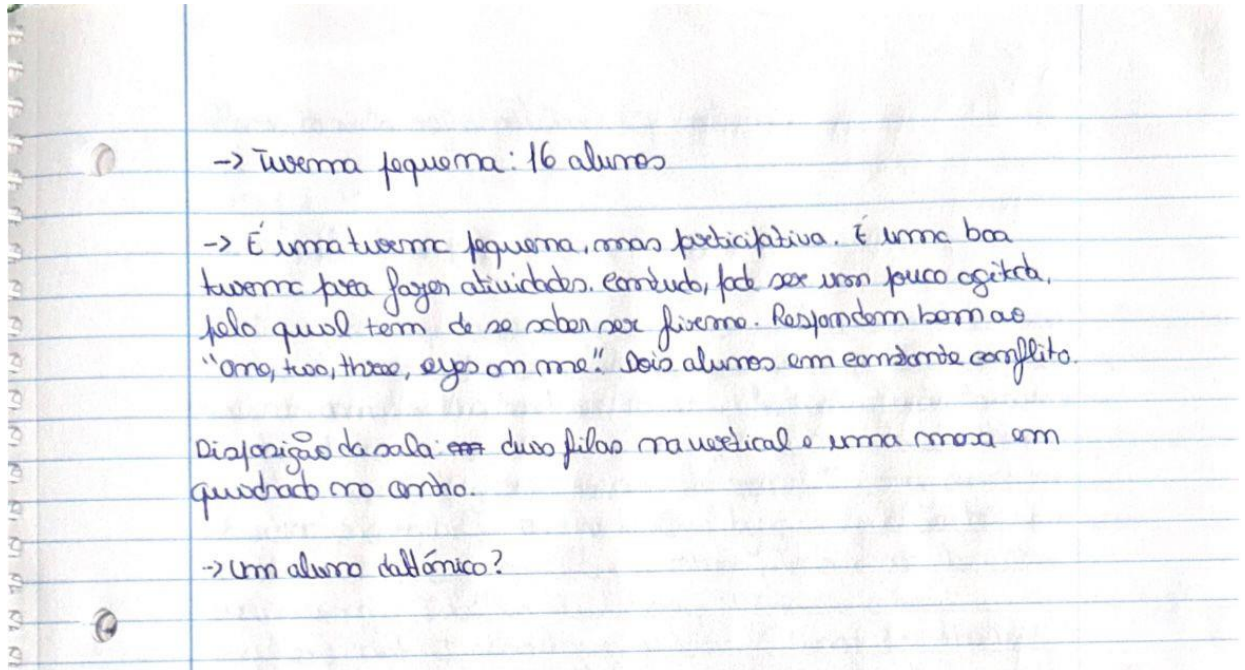 -> Turma pequena: 16 alunos
-> É uma turma pequena, mas participativa. É uma boa
turma para fazer atividades. Contudo, pode ser um pouco agitada,
pelo qual tem de se saber ser firme. Respondem bem ao
"one, two, three, eyes on me". Dois alunos em constante conflito.
Disposição da sala: duas filas na vertical e uma mesa em
quadrado no centro.
-> Um aluno daltónico?